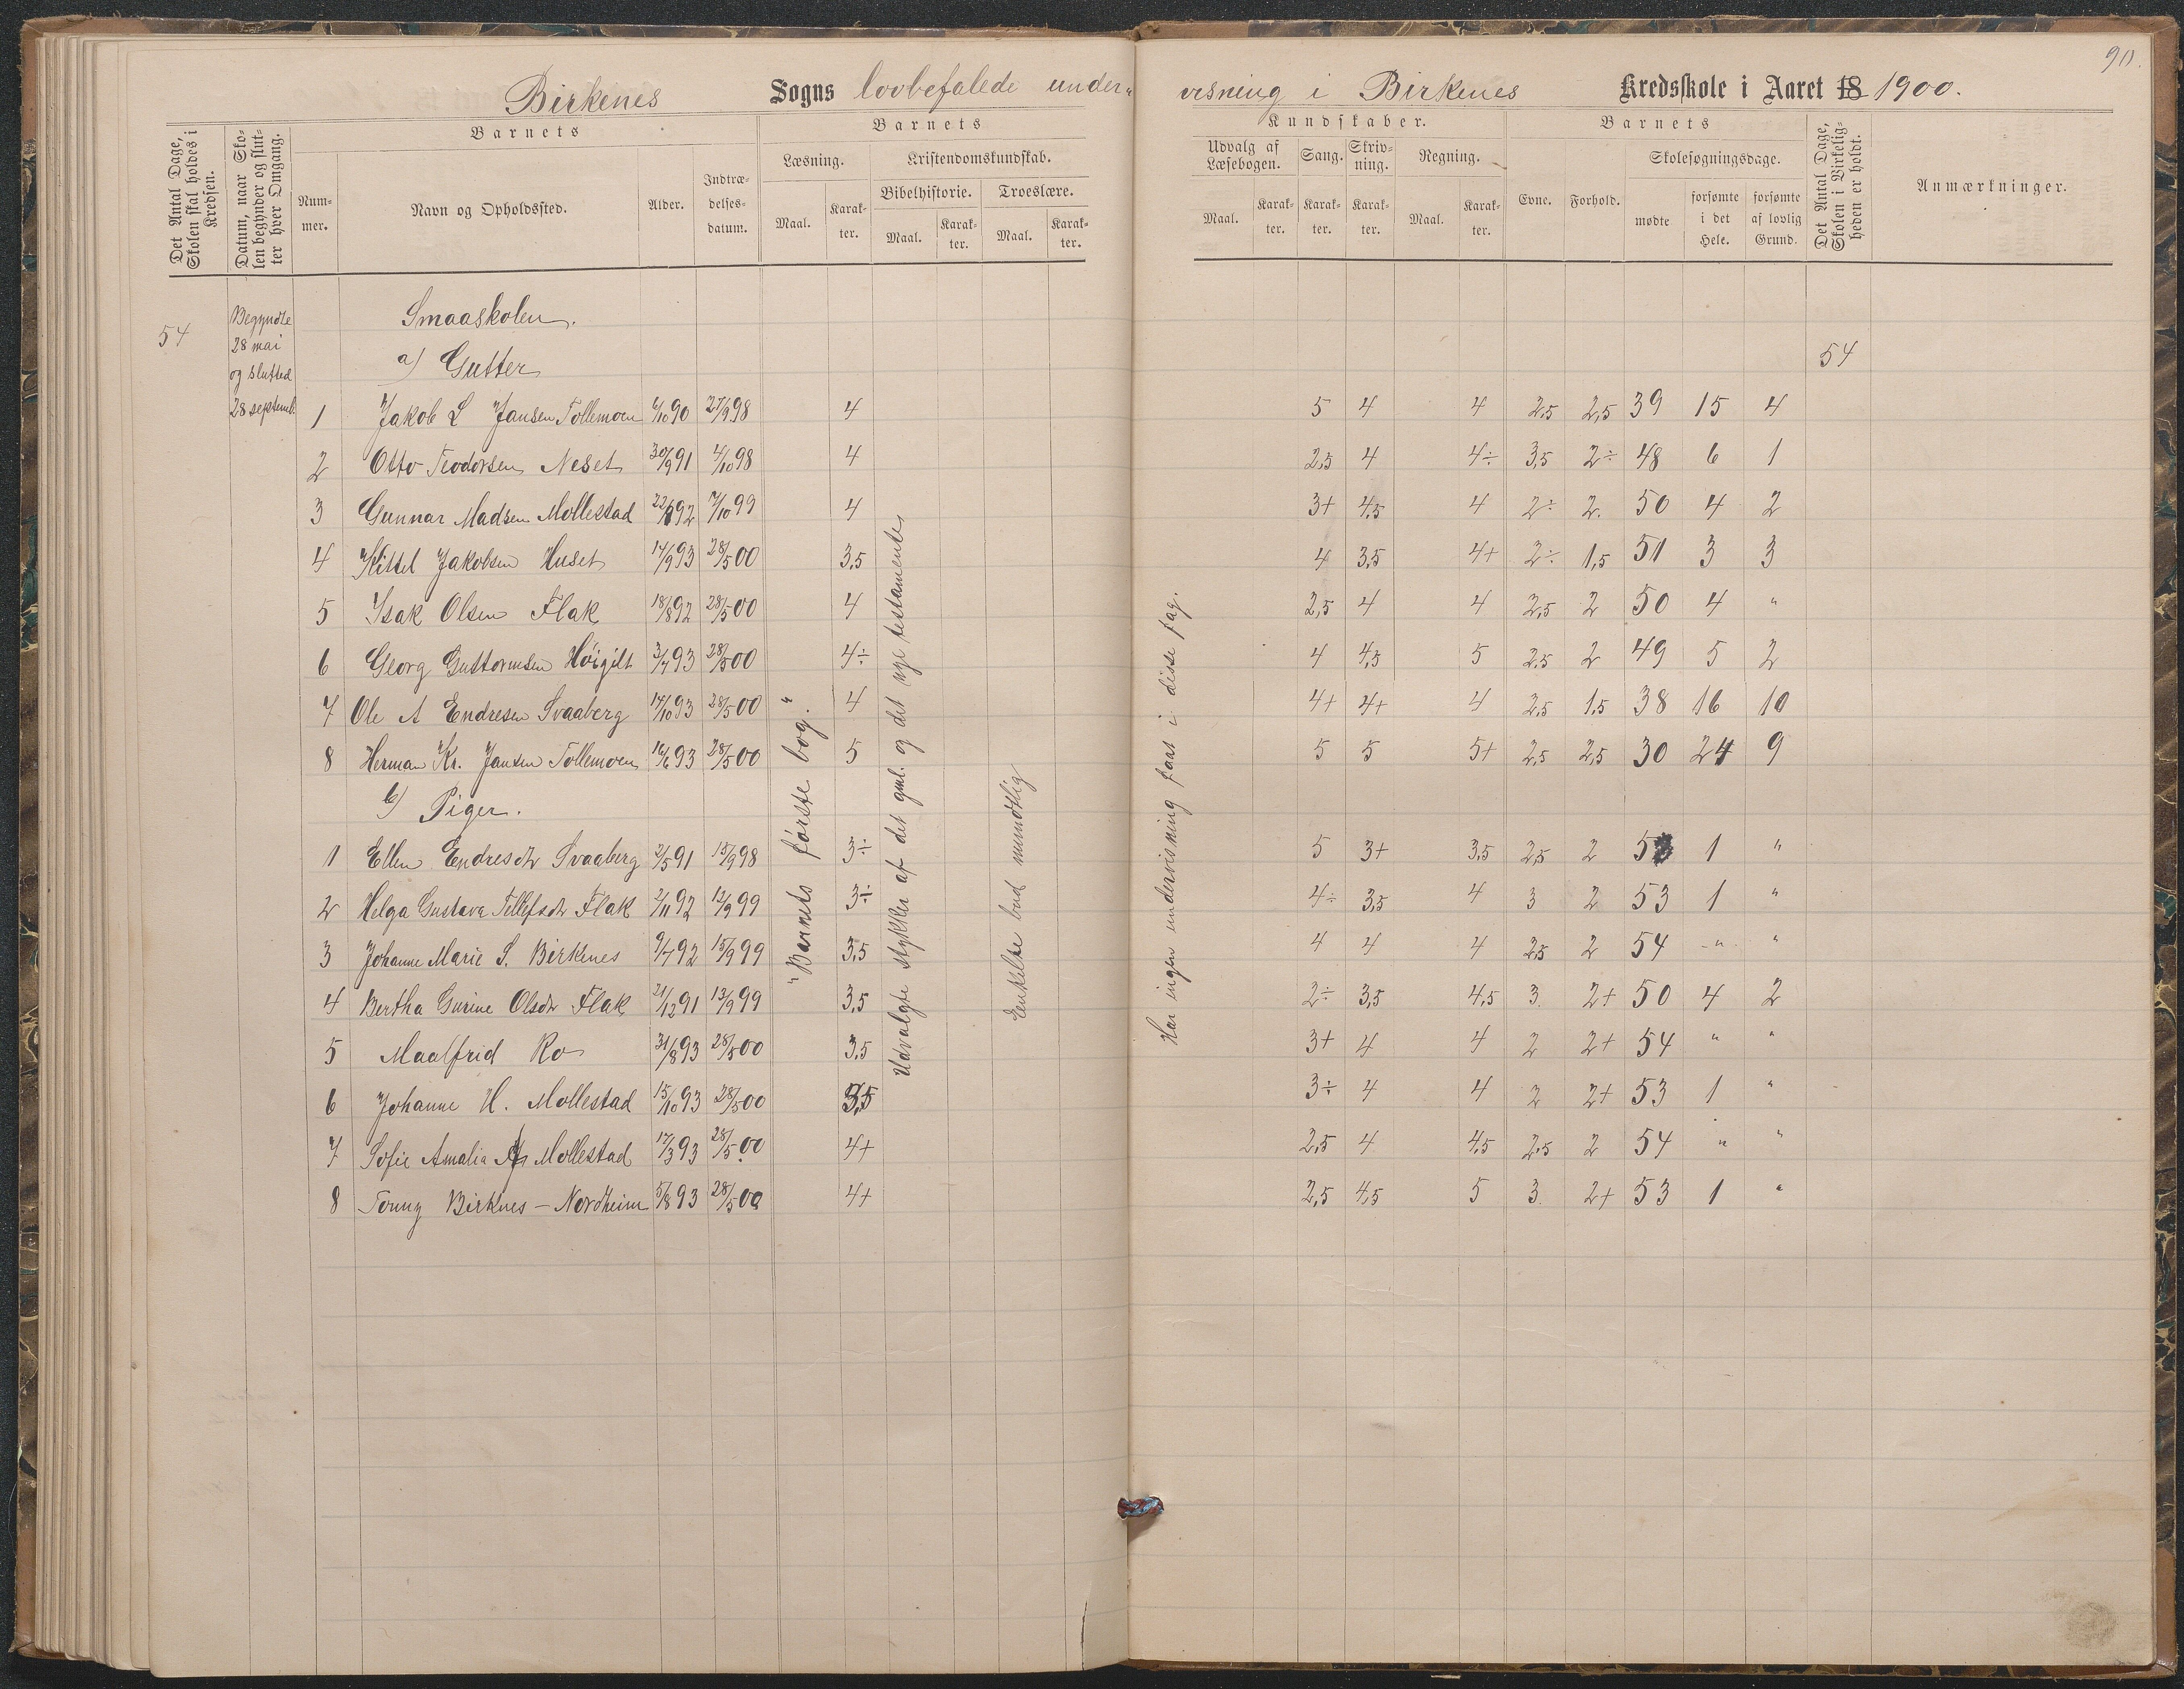 90.
Birkenes Sogns lovbefalede under- visning i Birkenes Kredsskole i Aaret 18 1900.
Det Antal Dage, Skolen skal holdes i Kredsen.
Datum, naar Skolen begynder og slutter hver Omgang.
Barnets
Nummer.
Navn og Opholdssted.
Alder.
Indtrædelsesdatum.
Barnets
Læsning.
Maal.
Karakter.
Kristendomskundskab.
Bibelhistorie.
Maal.
Karakter.
Troeslære.
Maal.
Karakter.
Kundskaber.
Udvalg af Læsebogen.
Maal.
Karakter.
Sang.
Karakter.
Skrivning.
Karakter.
Regning.
Maal.
Karakter.
Barnets
Evne.
Forhold.
Skolesøgningsdage.
mødte
forsømte i det Hele.
forsømte af lovlig Grund.
Det Antal Dage, Skolen i Virkeligheden er holdt.
Anmærkninger.
54
Begyndte
28 mai
og slutted
28 septemb.
Smaaskolen.
a) Gutter
54
1 Jakob L Jansen Tollemoen 6/10 90 27/9 98 4 5 4 4 2,5 2,5 39 15 4
2 Otto Teodorsen Neset 30/9 91 4/10 98 4 2,5 4 4÷ 3,5 2÷ 48 6 1
3 Gunnar Madsen Mollestad 22/8 92 7/10 99 4 3+ 4,5 4 2÷ 2. 50 4 2
4 Kittel Jakobsen Huset 14/9 93 28/5 00 3,5 4 3,5 4+ 2÷ 1,5 51 3 3
5 Isak Olsen Flak 18/8 92 28/5 00 4 2,5 4 4 2,5 2 50 4 "
6 Georg Guttormsen Höigilt 3/7 93 28/5 00 4÷ 4 4,5 5 2,5 2 49 5 2
7 Ole A Endresen Svaaberg 17/10 93 28/5 00 4 4+ 4+ 4 2,5 1,5 38 16 10
8 Herman Kr. Jansen Tollemoen 16/6 93 28/5 00 5 5 5 5+ 2,5 2,5 30 24 9
b) Piger.
1 Ellen Endresdtr Svaaberg 2/5 91 15/9 98 3÷ 5 3+ 3,5 2,5 2 53 1 "
2 Helga Gustava Tellefsdtr Flak 2/11 92 12/9 99 3÷ 4÷ 3,5 4 3 2 53 1 "
3 Johanne Marie S. Birkenes 9/7 92 15/9 99 3,5 4 4 4 2,5 2 54 " "
4 Bertha Gurine Olsdtr Flak 21/12 91 13/9 99 3,5 2÷ 3,5 4,5 3. 2+ 50 4 2
5 Maalfrid Ro 31/8 93 28/5 00 3,5 3+ 4 4 2 2+ 54 " "
6 Johanne H. Mollestad 15/10 93 28/5 00 3,5 3÷ 4 4 2 2+ 53 1 "
7 Sofie Amalia Mollestad 17/3 93 28/5 00 4+ 2,5 4 4,5 2,5 2 54 " "
8 Tonny Birknes - Nordheim 5/8 93 28/5 00 4+ 2,5 4,5 5 3. 2+ 53 1 "
"Barnets første bog."
Udvalgte stykker af det gml. og det nye testamente
Enkelte bud mundtlig
Har ingen undervisning faat i disse fag.